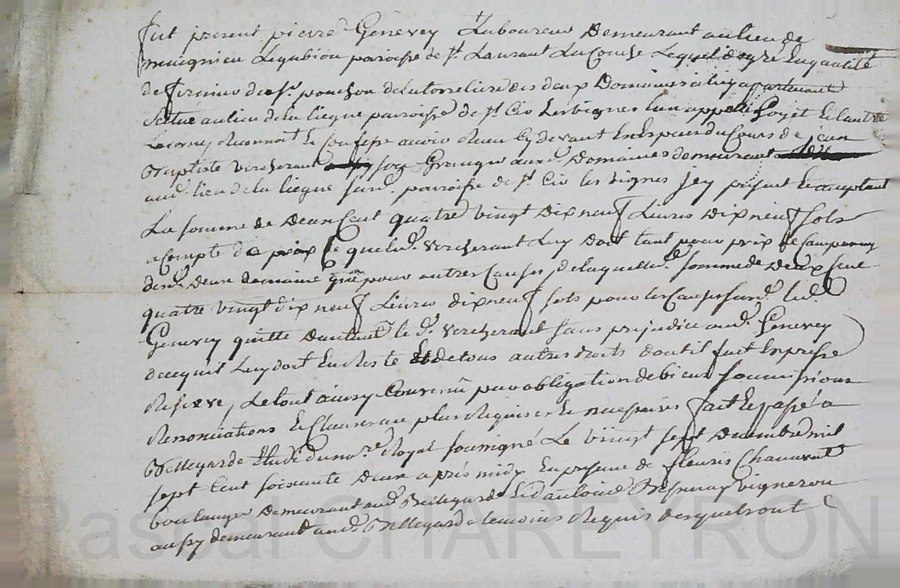 fut present pierre Genevey Laboureur Demeurant au lieu de
Magnieu Legabion paroisse de st Laurant La Conche Lequel de gré En qualité
de fermier de sr ponchon de la des deux Domaines à luy apartenant
Situé au lieu de la liegue paroisse de st Cir Les vignes lun appellé foyet Et lautre
Recennoit Et Confesse avoir Receu Cy devant En Especes du Cours de jean
Baptiste vercherant Granger aux Domaines demeurant
aud. lieu de la liegue susd. paroisse de st Cir les vignes Icy present Et aceptant
La somme de Deux Cent quatre vingt Dix neuf Livres Dix neuf sols
a Compte de prix Ce que led. vercherant Luy doit tant pour prix de
deux Domaine que pour autres Causes, de laquelle de somme de Deux Cent
quatre vingt dix neuf Livres dix neuf sols pour les Causes susd. led.
Genevey quitte Dautant le d. vercherant sans prejudice aud. Genevey
de ce quil Luy doit En Reste Et de tous autres droits dont il fait Expresse
Reserve, Le tout ainsy Convenu par obligation de bieux soumissions
Renonciations Et Clauses au plus Requises Et necessaires fait Et passé a
Bellegarde Etude du nore Royal soussigné Le vingt sept Decembre mil
sept Cent soixante Deux après midy En presence de fleuris Chanavat
boulanger Demeurant aud. Bellegarde Et d'antoine vigneron
aussy demeurant aud. Bellegarde temoins Requis Lesquels ont
Pascal CHAREYRON